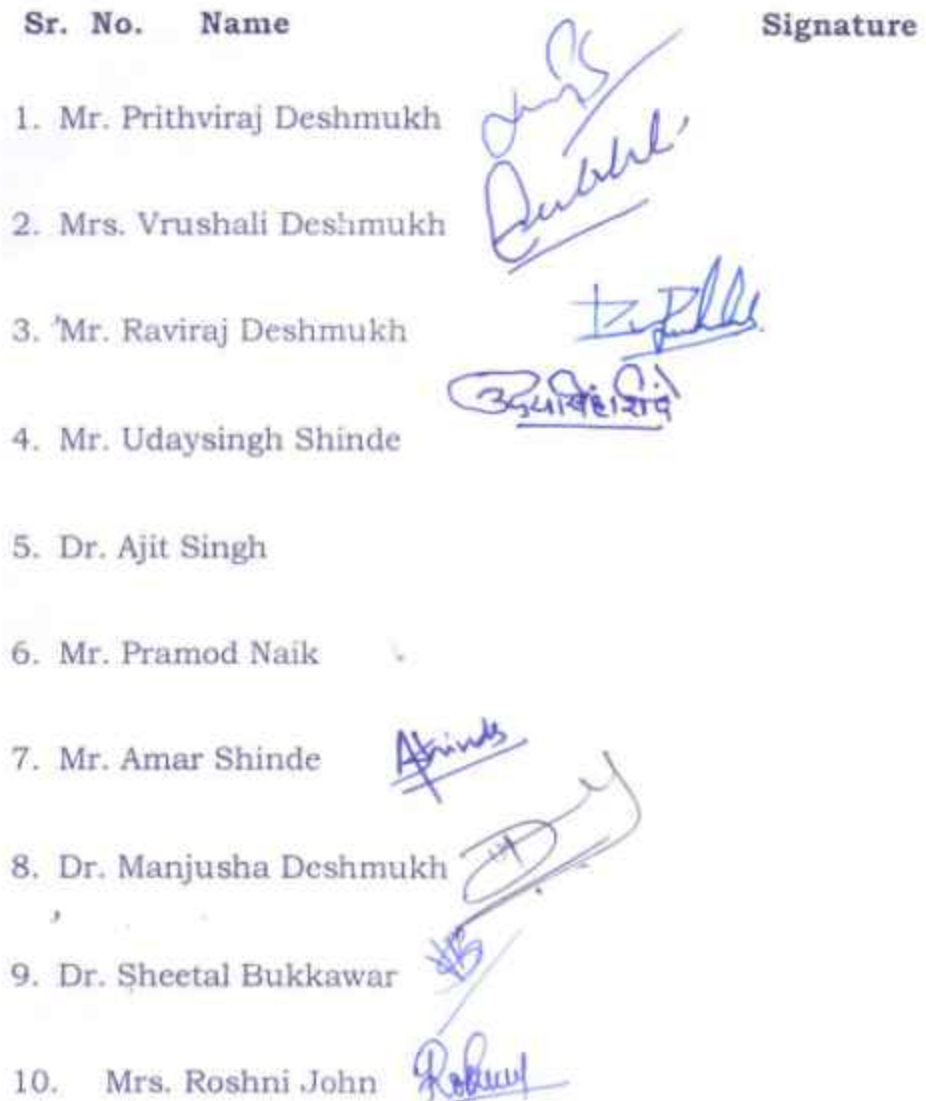 Sr. No. Name Signature
1. Mr. Prithviraj Deshmukh
2. Mrs. Vrushali Deshmukh
3. Mr. Raviraj Deshmukh
उदयसिंह शिंदे
4. Mr. Udaysingh Shinde
5. Dr. Ajit Singh
6. Mr. Pramod Naik
7. Mr. Amar Shinde AShinde
8. Dr. Manjusha Deshmukh
9. Dr. Sheetal Bukkawar
10. Mrs. Roshni John